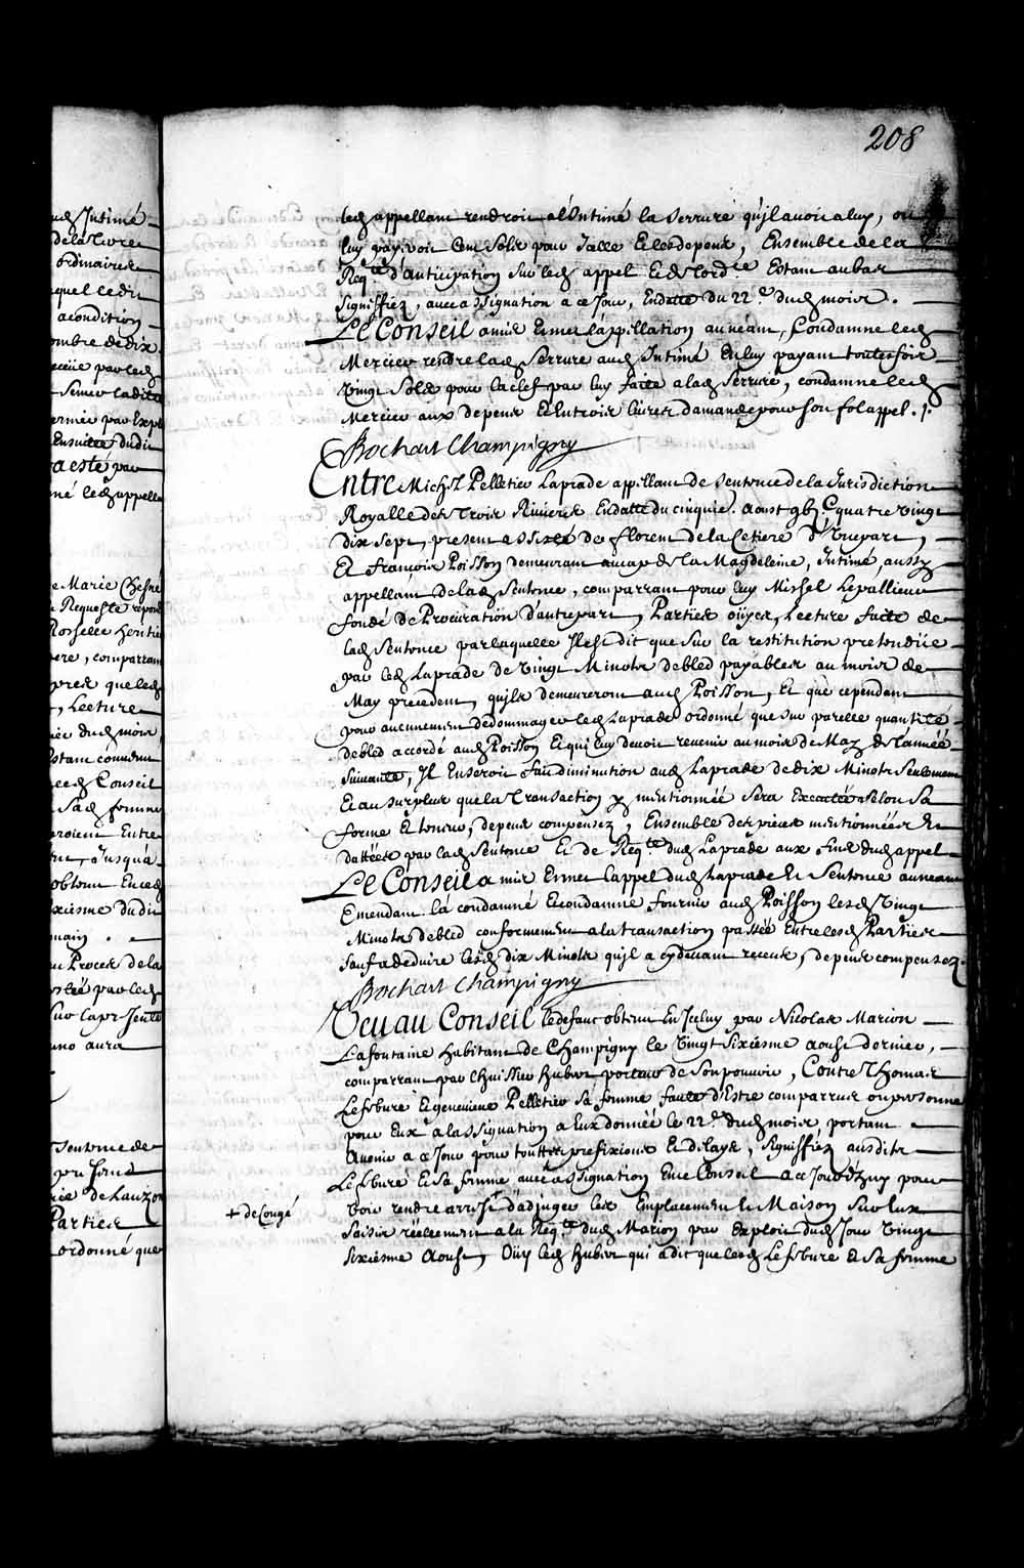 208
led appellant rendroit a l'Intimé la serrure qu'jl avoit a luy, ou
luy payeroit Cent sols pour Jcelle Et les depens, Ensemble de la
Reqte d'anticipation sur led appel Et de lordce Estant au bas
signiffiez, avec assignation a ce Jour, En datte du 22e dud mois.
Le Conseil a mis Et met L'appellation au neant, Condamne led
Mercier rendre lad serrure aud Intimé En luy payant touttesfois
Vingt sols pour la clef par luy faite a lad serrure, condamne led
Mercier aux depens Et En trois livres d'amande pour son fol appel. /.
Bochart Champigny
Entre Michel Pelletier Laprade appellant de sentence de la Jurisdiction
Royalle des Trois Rivieres En datte du cinquie. aoust gbj. C quatre vingt
dix sept, present assisté de florent de la Cetiere d'Vne part,
Et françois Poisson demeurant au cap de la Magdeleine, Intimé, aussy
appellant de lad sentence, comparrant pour luy Michel Lepallieur
fondé de Procuration d'autre part, Parties oüyes, Lecture faite de
lad sentence par laquelle Jl est dit que sur la restitution pretendüe
par led Laprade de vingt Minots de bled payables au mois de
May precedent, qu'jls demeureront aud Poisson, Et que cependant
pour aucunement dedommager led Laprade ordonné que sur pareille quantité
de bled accordé aud Poisson Et qui luy devoit revenir au mois de May de l'année
suivante, Jl En seroit fait diminution aud Laprade de dix Minots seulement
Et au surplus que la Transaction y mentionnée sera Executée selon sa
forme Et teneur, depens compensez, Ensemble des pieces mentionnées Et
dattées par lad sentence Et de Reqte dud Laprade aux fins dud appel
Le Conseil a mis Et met l'appel dud Laprade Et sentence au neant
Emendant l'a condamné Et condamne fournir aud Poisson lesd vingt
Minots de bled conformement a la transaction passée Entre lesd Parties
sauf a deduire lesd dix Minots qu'jl a cy devant receus, depens compensez.
Bochart Champigny
Veu au Conseil le defaut obtenu En Jceluy par Nicolas Marion
Lafontaine habitant de Champigny le vingt sixiesme aoust dernier,
comparrant par l'huissier hubert porteur de son pouvoir, Contre Thomas
Lefebure Et genevieve Pelletier sa femme faute d'Estre comparrus ou personne
pour Eux a l'assignation a Eux donnée le 22e dud mois, portant
a venir a ce Jour pour touttes prefixions Et delays, signiffiez ausdits
Lefebure Et sa femme avec assignation En ce Conseil a ce Jourd'huy pour
voir rendre arrest d'adjuger les Emplacement Et Maison sur Eux
saisis réellement a la Reqte dud Marion par Exploit dud Jour vingt
sixiesme Aoust, Oüy led hubert qui a dit que lesd Lefebure Et sa femme
+ de Congé
Intimé
ordinaires
acondition
ombre de dix
par led
Ensuitte dudit
a esté par
né led appella
Marie Chesne
Requeste répon
comparran
que led
Lecture
dud mois
Conseil
sad femme
Entre
Jusqu'a
obtenu En ced
xiesme dudit
Proces de la
par led
uno aura
sentence de
de Lauzon
Parties
ordonné que